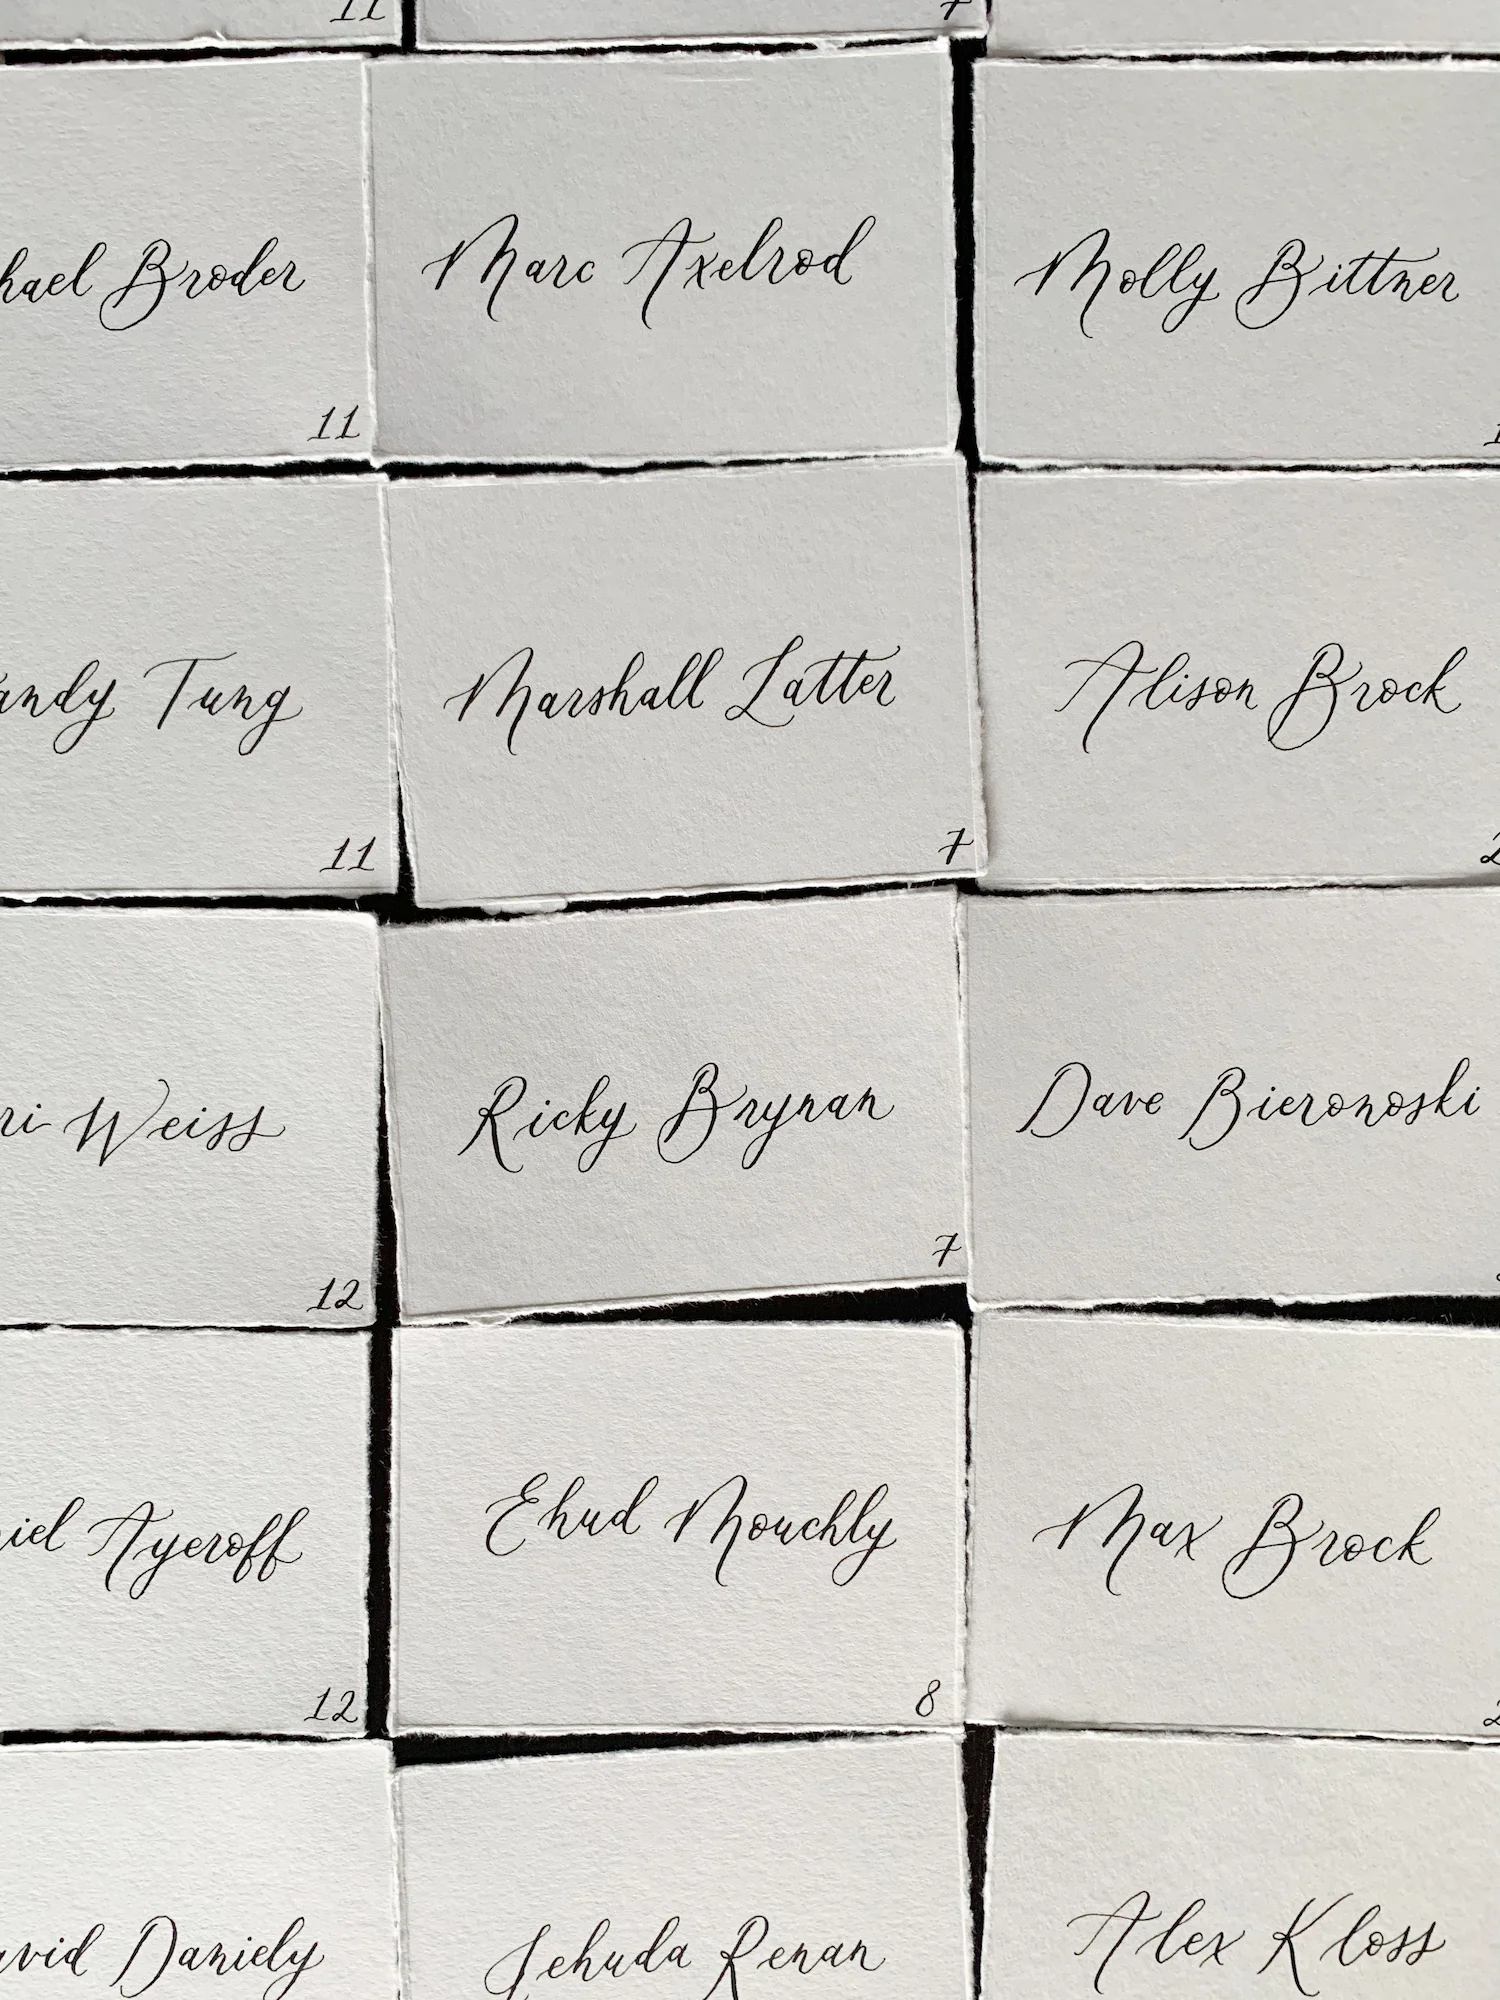 11
7
hael Broder
11
Marc Axelrod
Molly Bittner
andy Tung
11
Marshall Latter
7
Alison Brock
2
ri Weiss
12
Ricky Brynan
7
Dave Bieronoski
iel Ayeroff
12
Ehud Mouchly
8
Max Brock
2
avid Daniely
Jehuda Renan
Alex Kloss